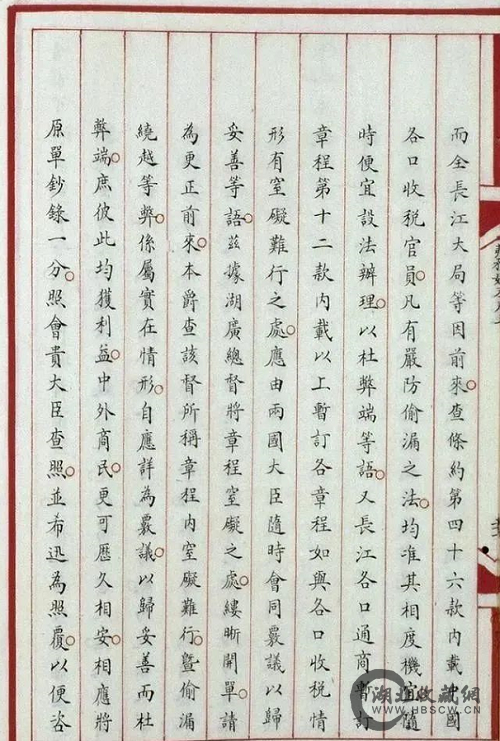 而全長江大局等因前來。查條約第四十六款內載中國
各口收稅官員。凡有嚴防偷漏之法。均准其相度機宜隨
時便宜設法辦理。以杜弊端等語。又長江各口通商暫訂
章程第十二款內載以上暫訂各章程如與各口收稅情
形有窒礙難行之處。應由兩國大臣隨時會同覈議以歸
妥善等語。茲據湖廣總督將章程窒礙之處。縷晰開單。請
為更正前來。本爵查該督所稱章程內窒礙難行。暨偷漏
繞越等弊。係屬實在情形。自應詳為覈議。以歸妥善而杜
弊端。庶彼此均獲利益。中外商民。更可歷久相安。相應將
原單鈔錄一分。照會貴大臣查照。並布迅為照覆。以便咨
湖北收藏网
WWW.HBSCW.COM